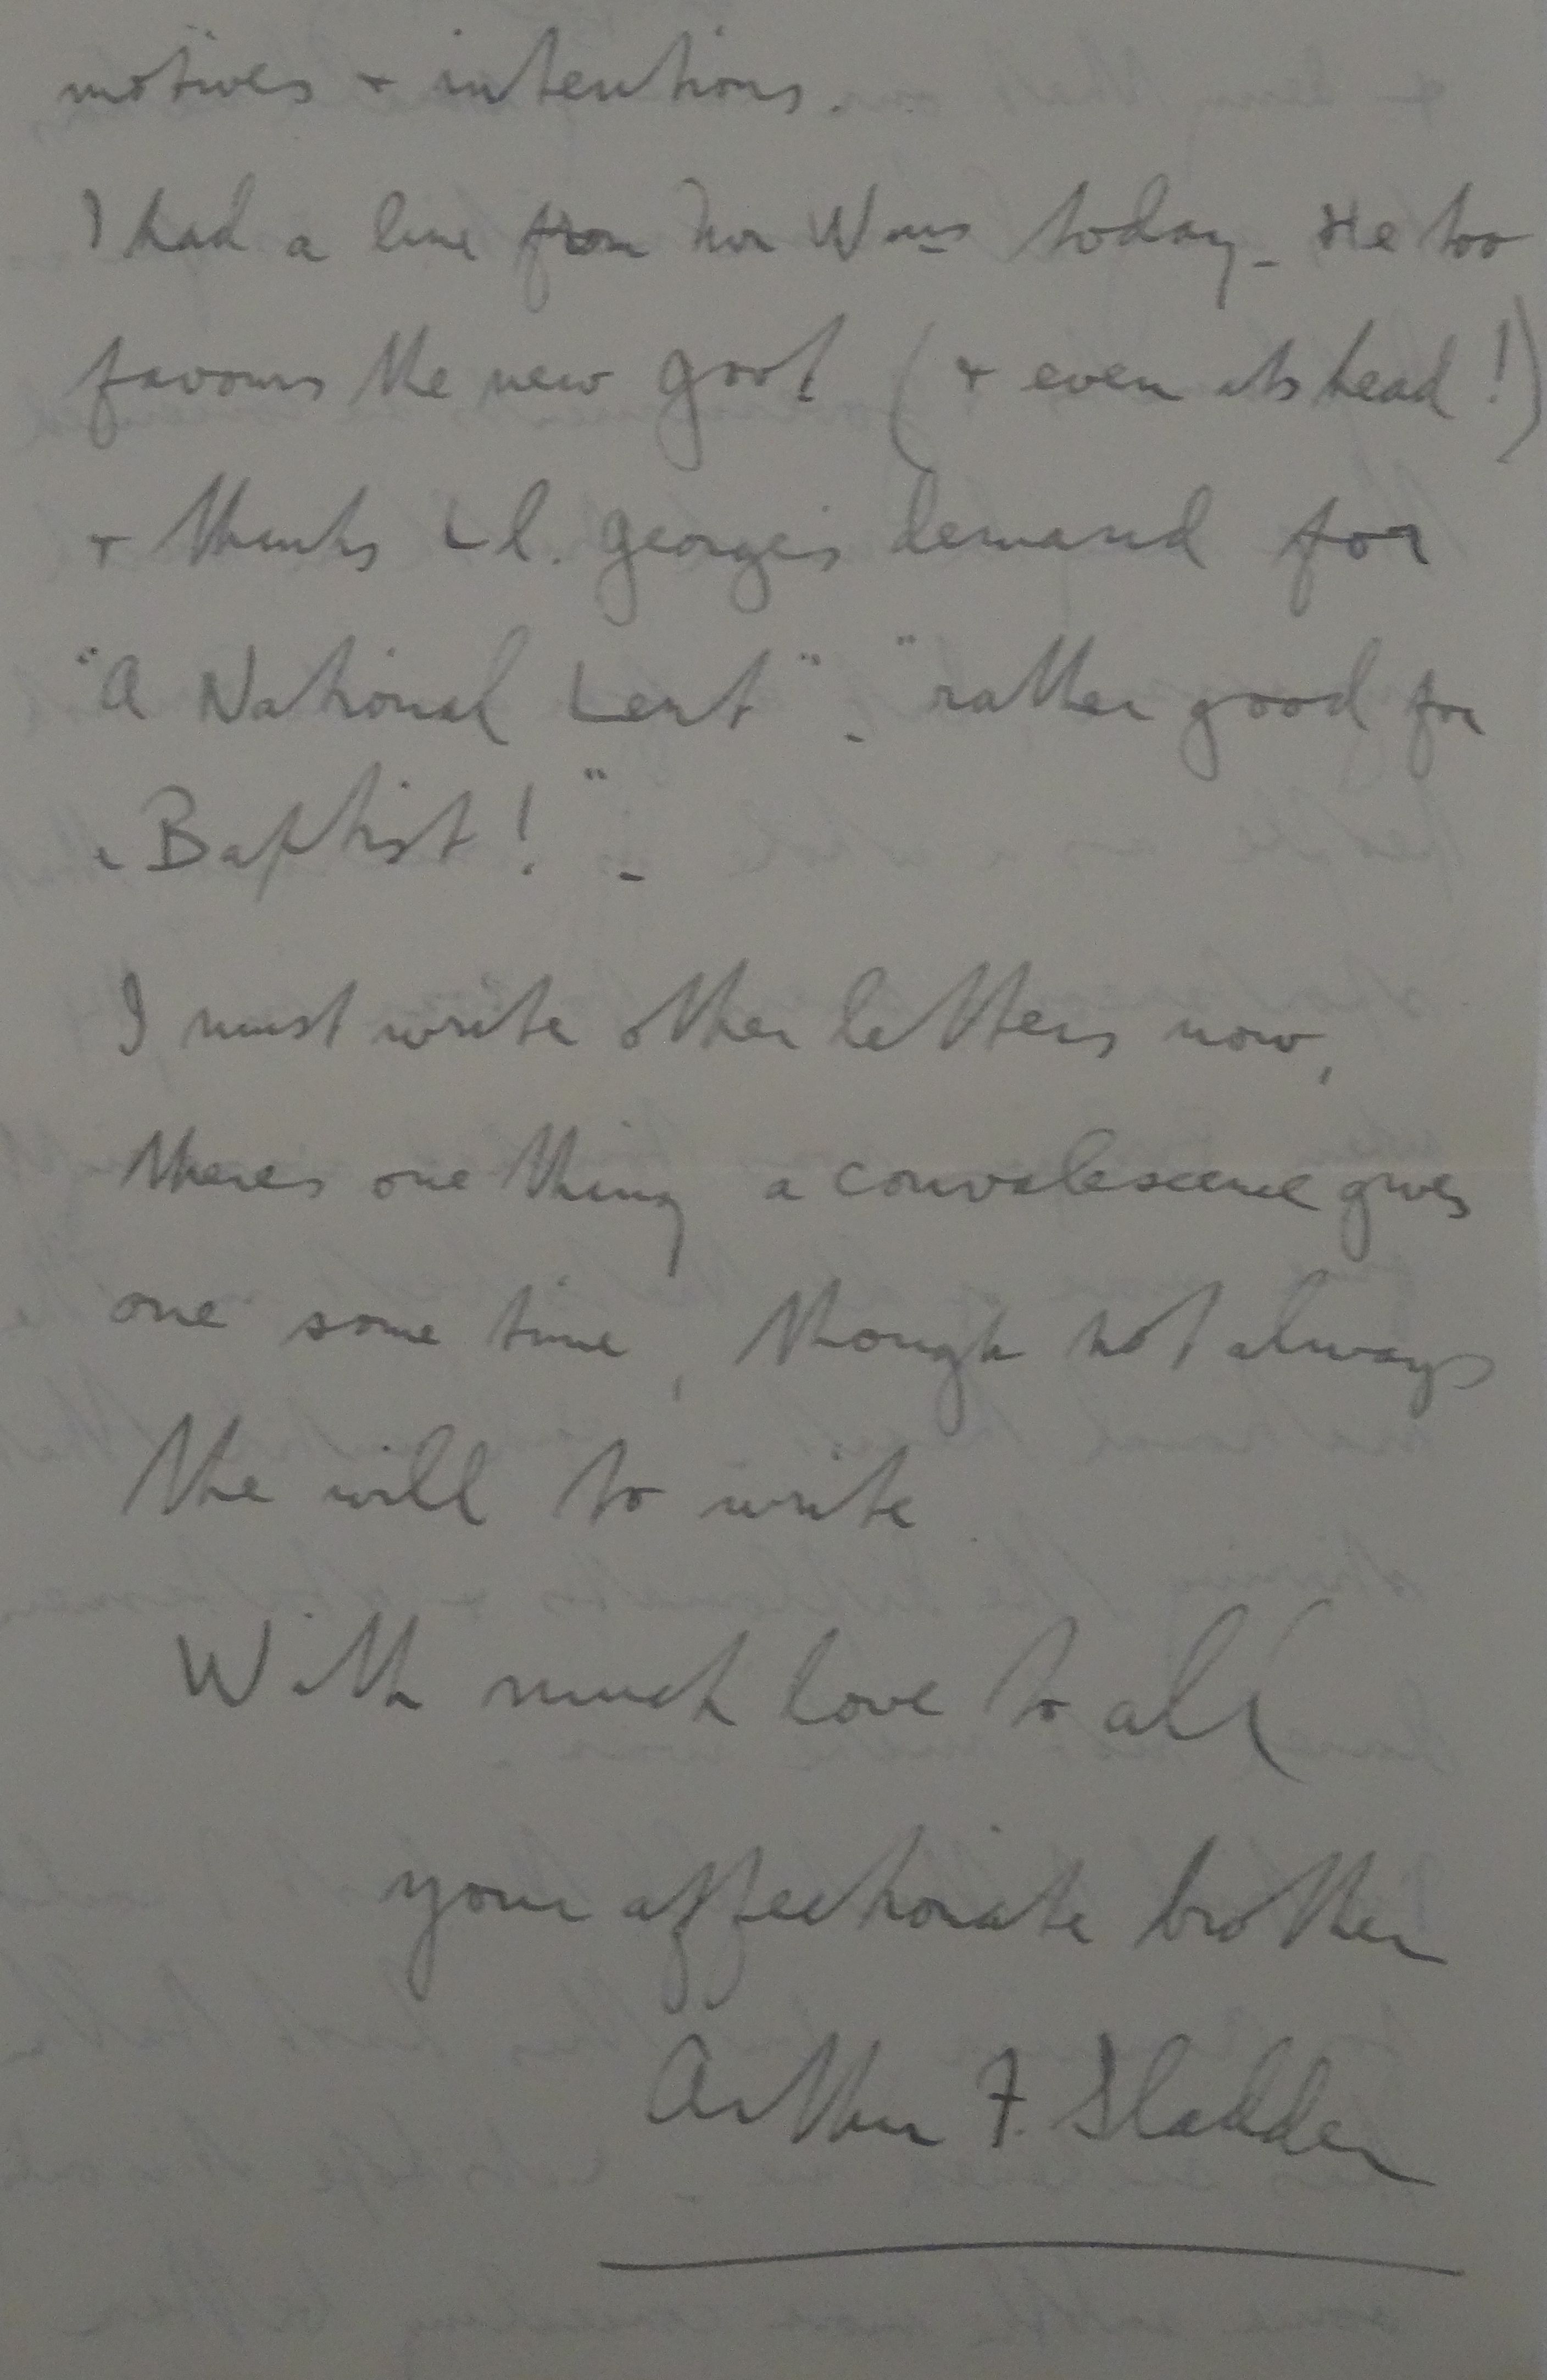 motives + intentions.
I had a line from Nor Wms today - He too
favours the new govt (+ even its head!)
+ thinks Ll. George's demand for
"A National Lent" - "rather good for
a Baptist!" -
I must write other letters now,
theres one thing a convalescence gives
one some time, though not always
the will to write.
With much love to all
your affectionate brother
Arthur F. Sladden